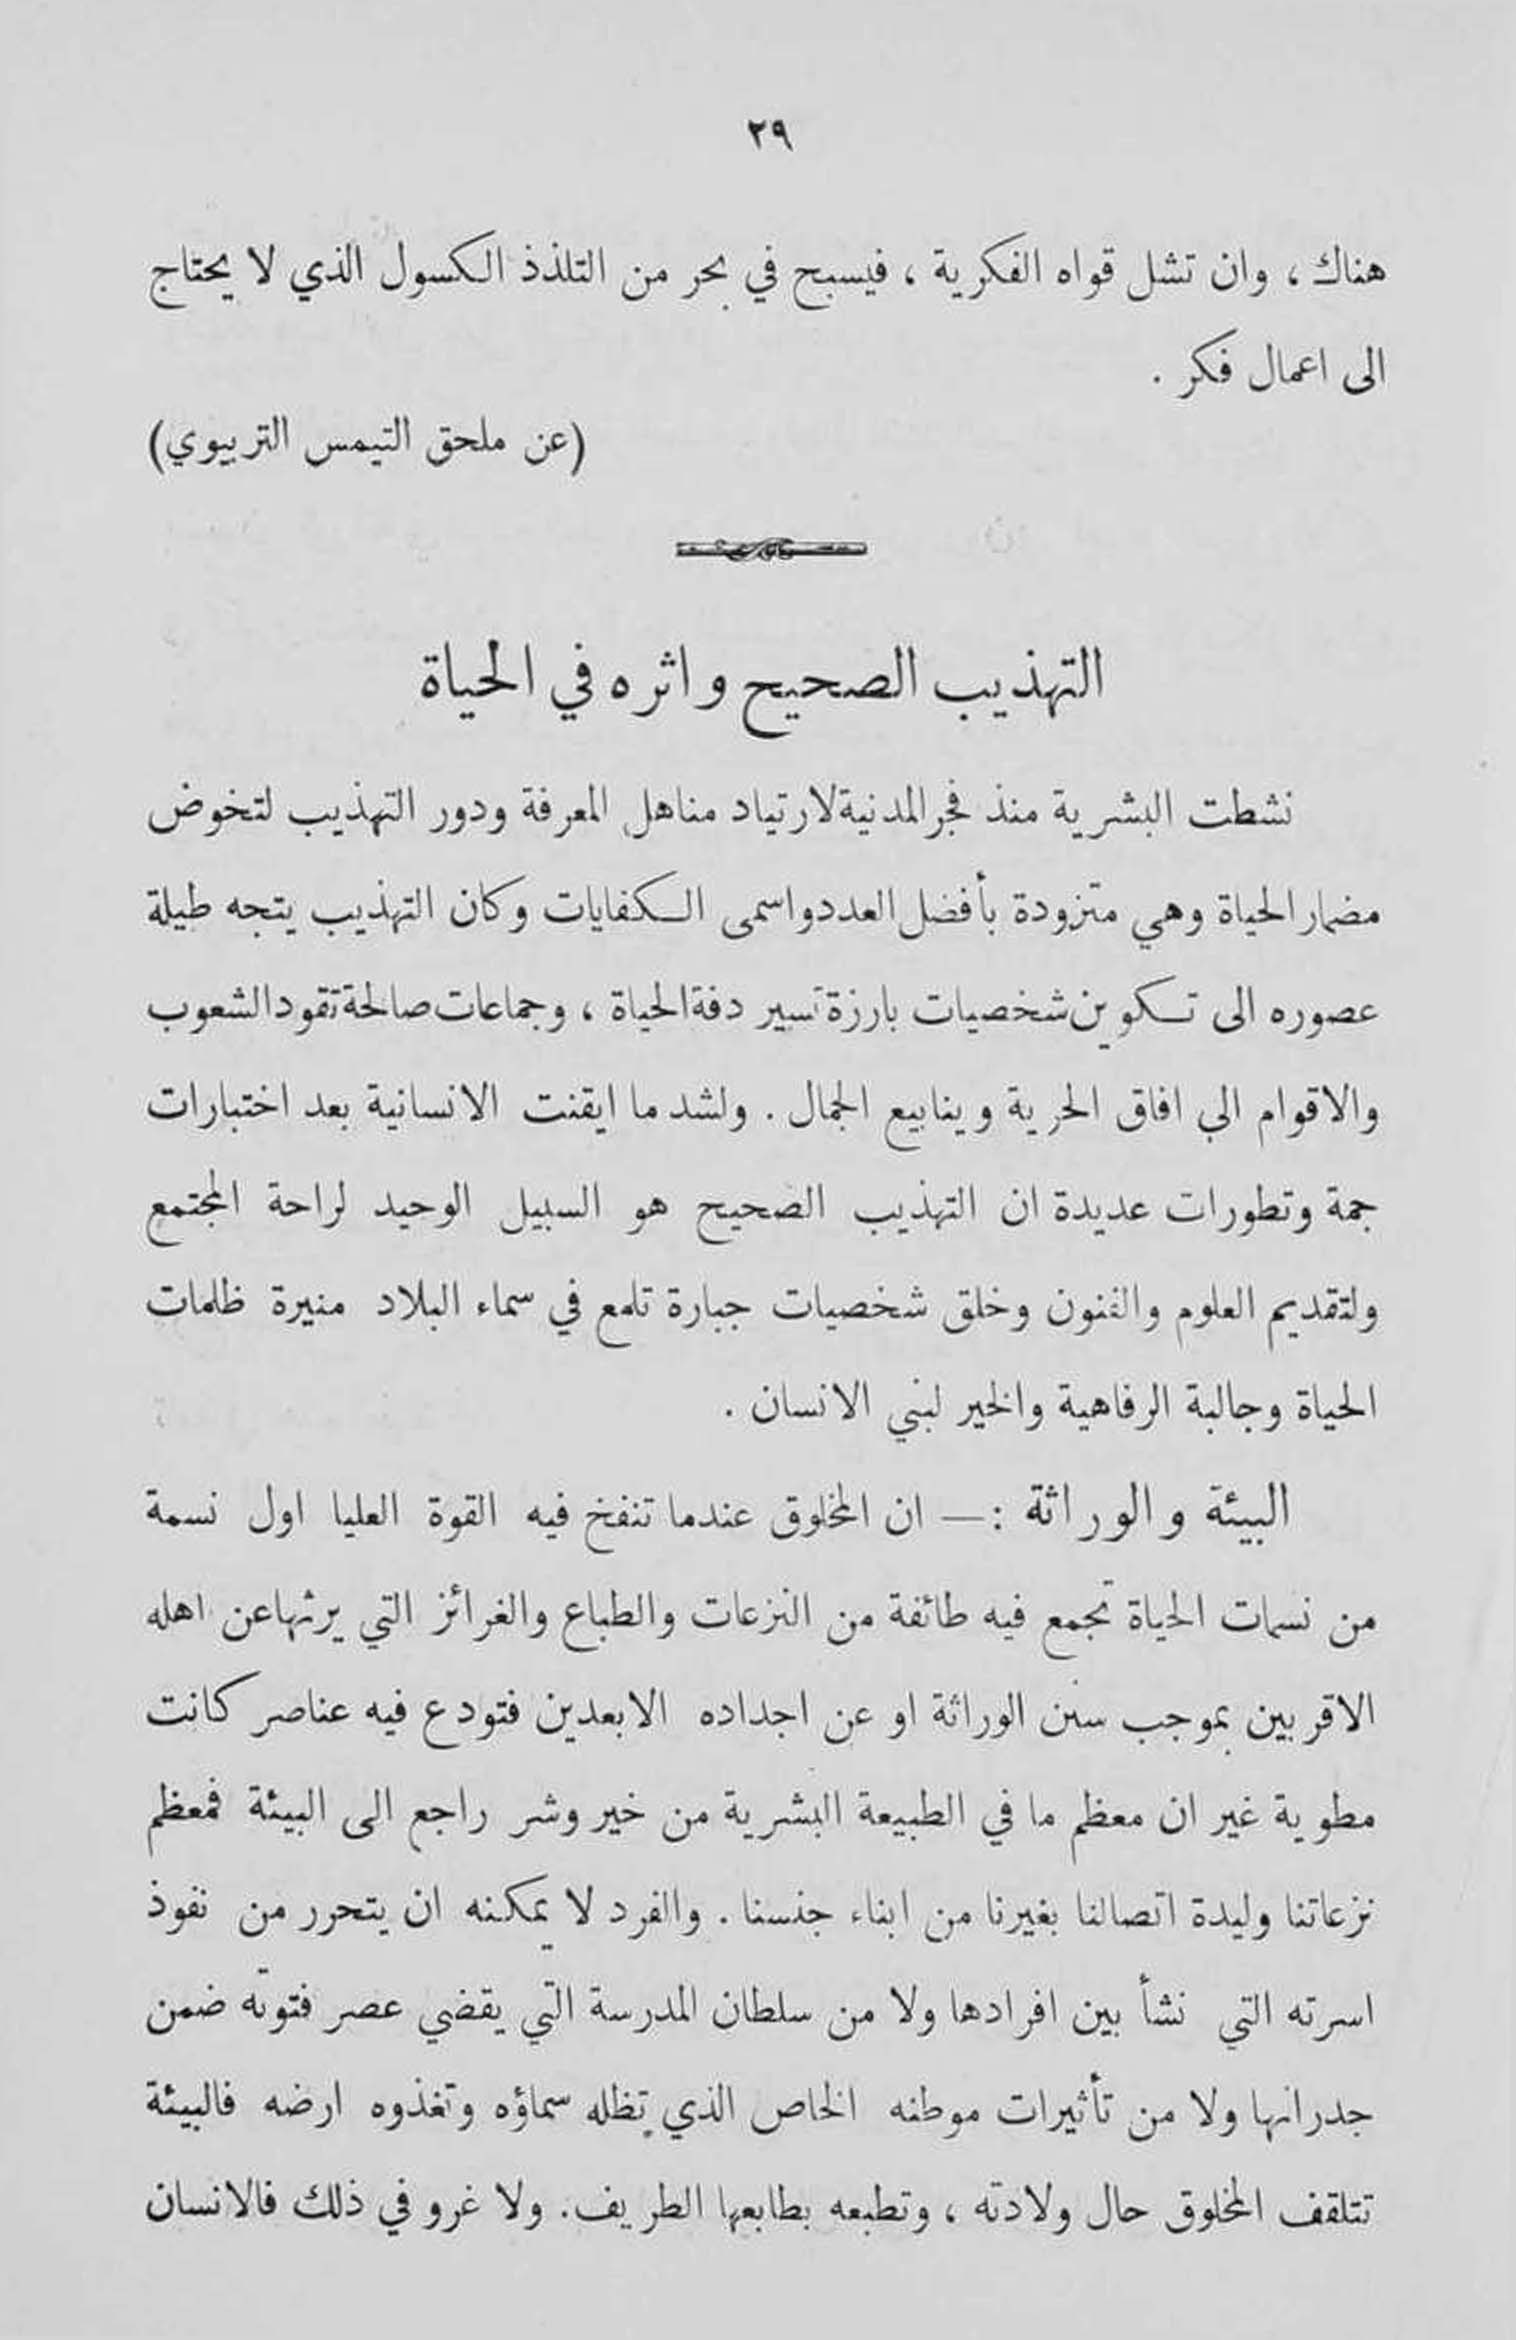 ٢٩
هناك ، وان تشل قواه الفكرية ، فيسبح في بحر من التلذذ الكسول الذي لا يحتاج
الى اعمال فكر .
(عن ملحق التيمس التربيوي)
التهذيب الصحيح واثره في الحياة
نشطت البشرية منذ فجر المدنية لارتياد مناهل المعرفة ودور التهذيب لتخوض
مضمار الحياة وهي متزودة بأفضل العدد واسمى الكفايات وكان التهذيب يتجه طيلة
عصوره الى تكوين شخصيات بارزة تسير دفة الحياة ، وجماعات صالحة تقود الشعوب
والاقوام الي افاق الحرية وينابيع الجمال . ولشد ما ايقنت الانسانية بعد اختبارات
جمة وتطورات عديدة ان التهذيب الصحيح هو السبيل الوحيد لراحة المجتمع
ولتقديم العلوم والفنون وخلق شخصيات جبارة تلمع في سماء البلاد منيرة ظلمات
الحياة وجالبة الرفاهية والخير لبني الانسان .
البيئة والوراثة :— ان المخلوق عندما تنفخ فيه القوة العليا اول نسمة
من نسمات الحياة تجمع فيه طائفة من النزعات والطباع والغرائز التي يرثها عن اهله
الاقربين بموجب سنن الوراثة او عن اجداده الابعدين فتودع فيه عناصر كانت
مطوية غير ان معظم ما في الطبيعة البشرية من خير وشر راجع الى البيئة فمعظم
نزعاتنا وليدة اتصالنا بغيرنا من ابناء جنسنا . والفرد لا يمكنه ان يتحرر من نفوذ
اسرته التي نشأ بين افرادها ولا من سلطان المدرسة التي يقضي عصر فتوته ضمن
جدرانها ولا من تأثيرات موطنه الخاص الذي تظله سماؤه وتغذوه ارضه فالبيئة
تتلقف المخلوق حال ولادته ، وتطبعه بطابعها الطريف. ولا غرو في ذلك فالانسان